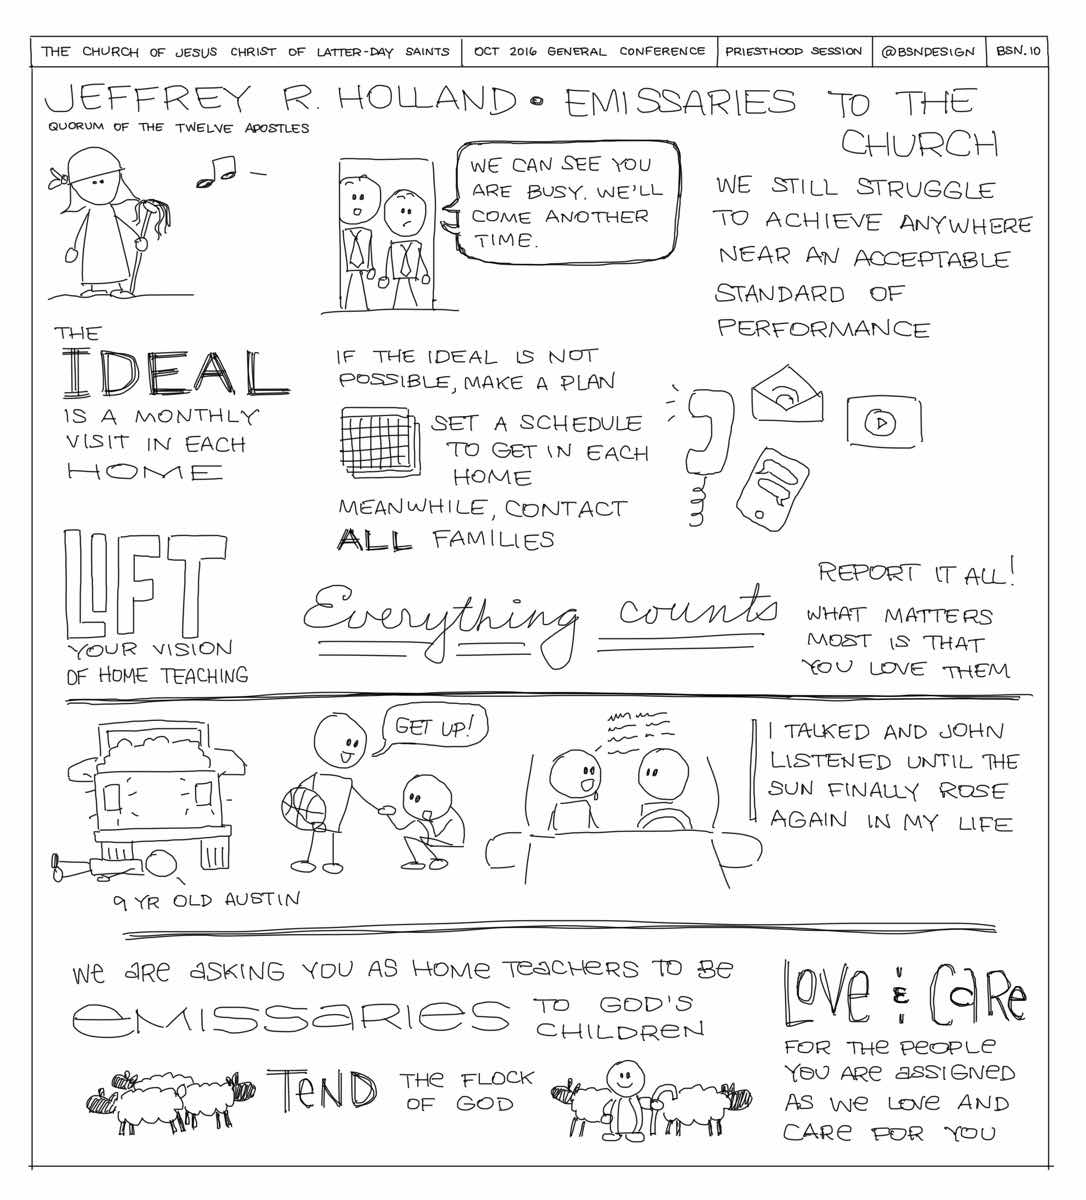 THE CHURCH OF JESUS CHRIST OF LATTER-DAY SAINTS
OCT 2016 GENERAL CONFERENCE
PRIESTHOOD SESSION
@BSNDESIGN
BSN.10
JEFFREY R. HOLLAND • EMISSARIES TO THE
CHURCH
QUORUM OF THE TWELVE APOSTLES
WE CAN SEE YOU
ARE BUSY. WE'LL
COME ANOTHER
TIME.
WE STILL STRUGGLE
TO ACHIEVE ANYWHERE
NEAR AN ACCEPTABLE
STANDARD OF
PERFORMANCE
THE
IDEAL
IS A MONTHLY
VISIT IN EACH
HOME
IF THE IDEAL IS NOT
POSSIBLE, MAKE A PLAN
SET A SCHEDULE
TO GET IN EACH
HOME
MEANWHILE, CONTACT
ALL FAMILIES
LIFT
YOUR VISION
OF HOME TEACHING
Everything counts
REPORT IT ALL!
WHAT MATTERS
MOST IS THAT
YOU LOVE THEM
9 YR OLD AUSTIN
GET UP!
I TALKED AND JOHN
LISTENED UNTIL THE
SUN FINALLY ROSE
AGAIN IN MY LIFE
We aRe asKING YOU AS HOMe TeacHeRS TO Be
eMISSaRIeS TO GOD'S
CHILDReN
TeND THE FLOCK
OF GOD
LOVe & CaRe
FOR THe PeOPLe
YOU ARe aSSIGNeD
AS We LOVe AND
CARe FOR YOU